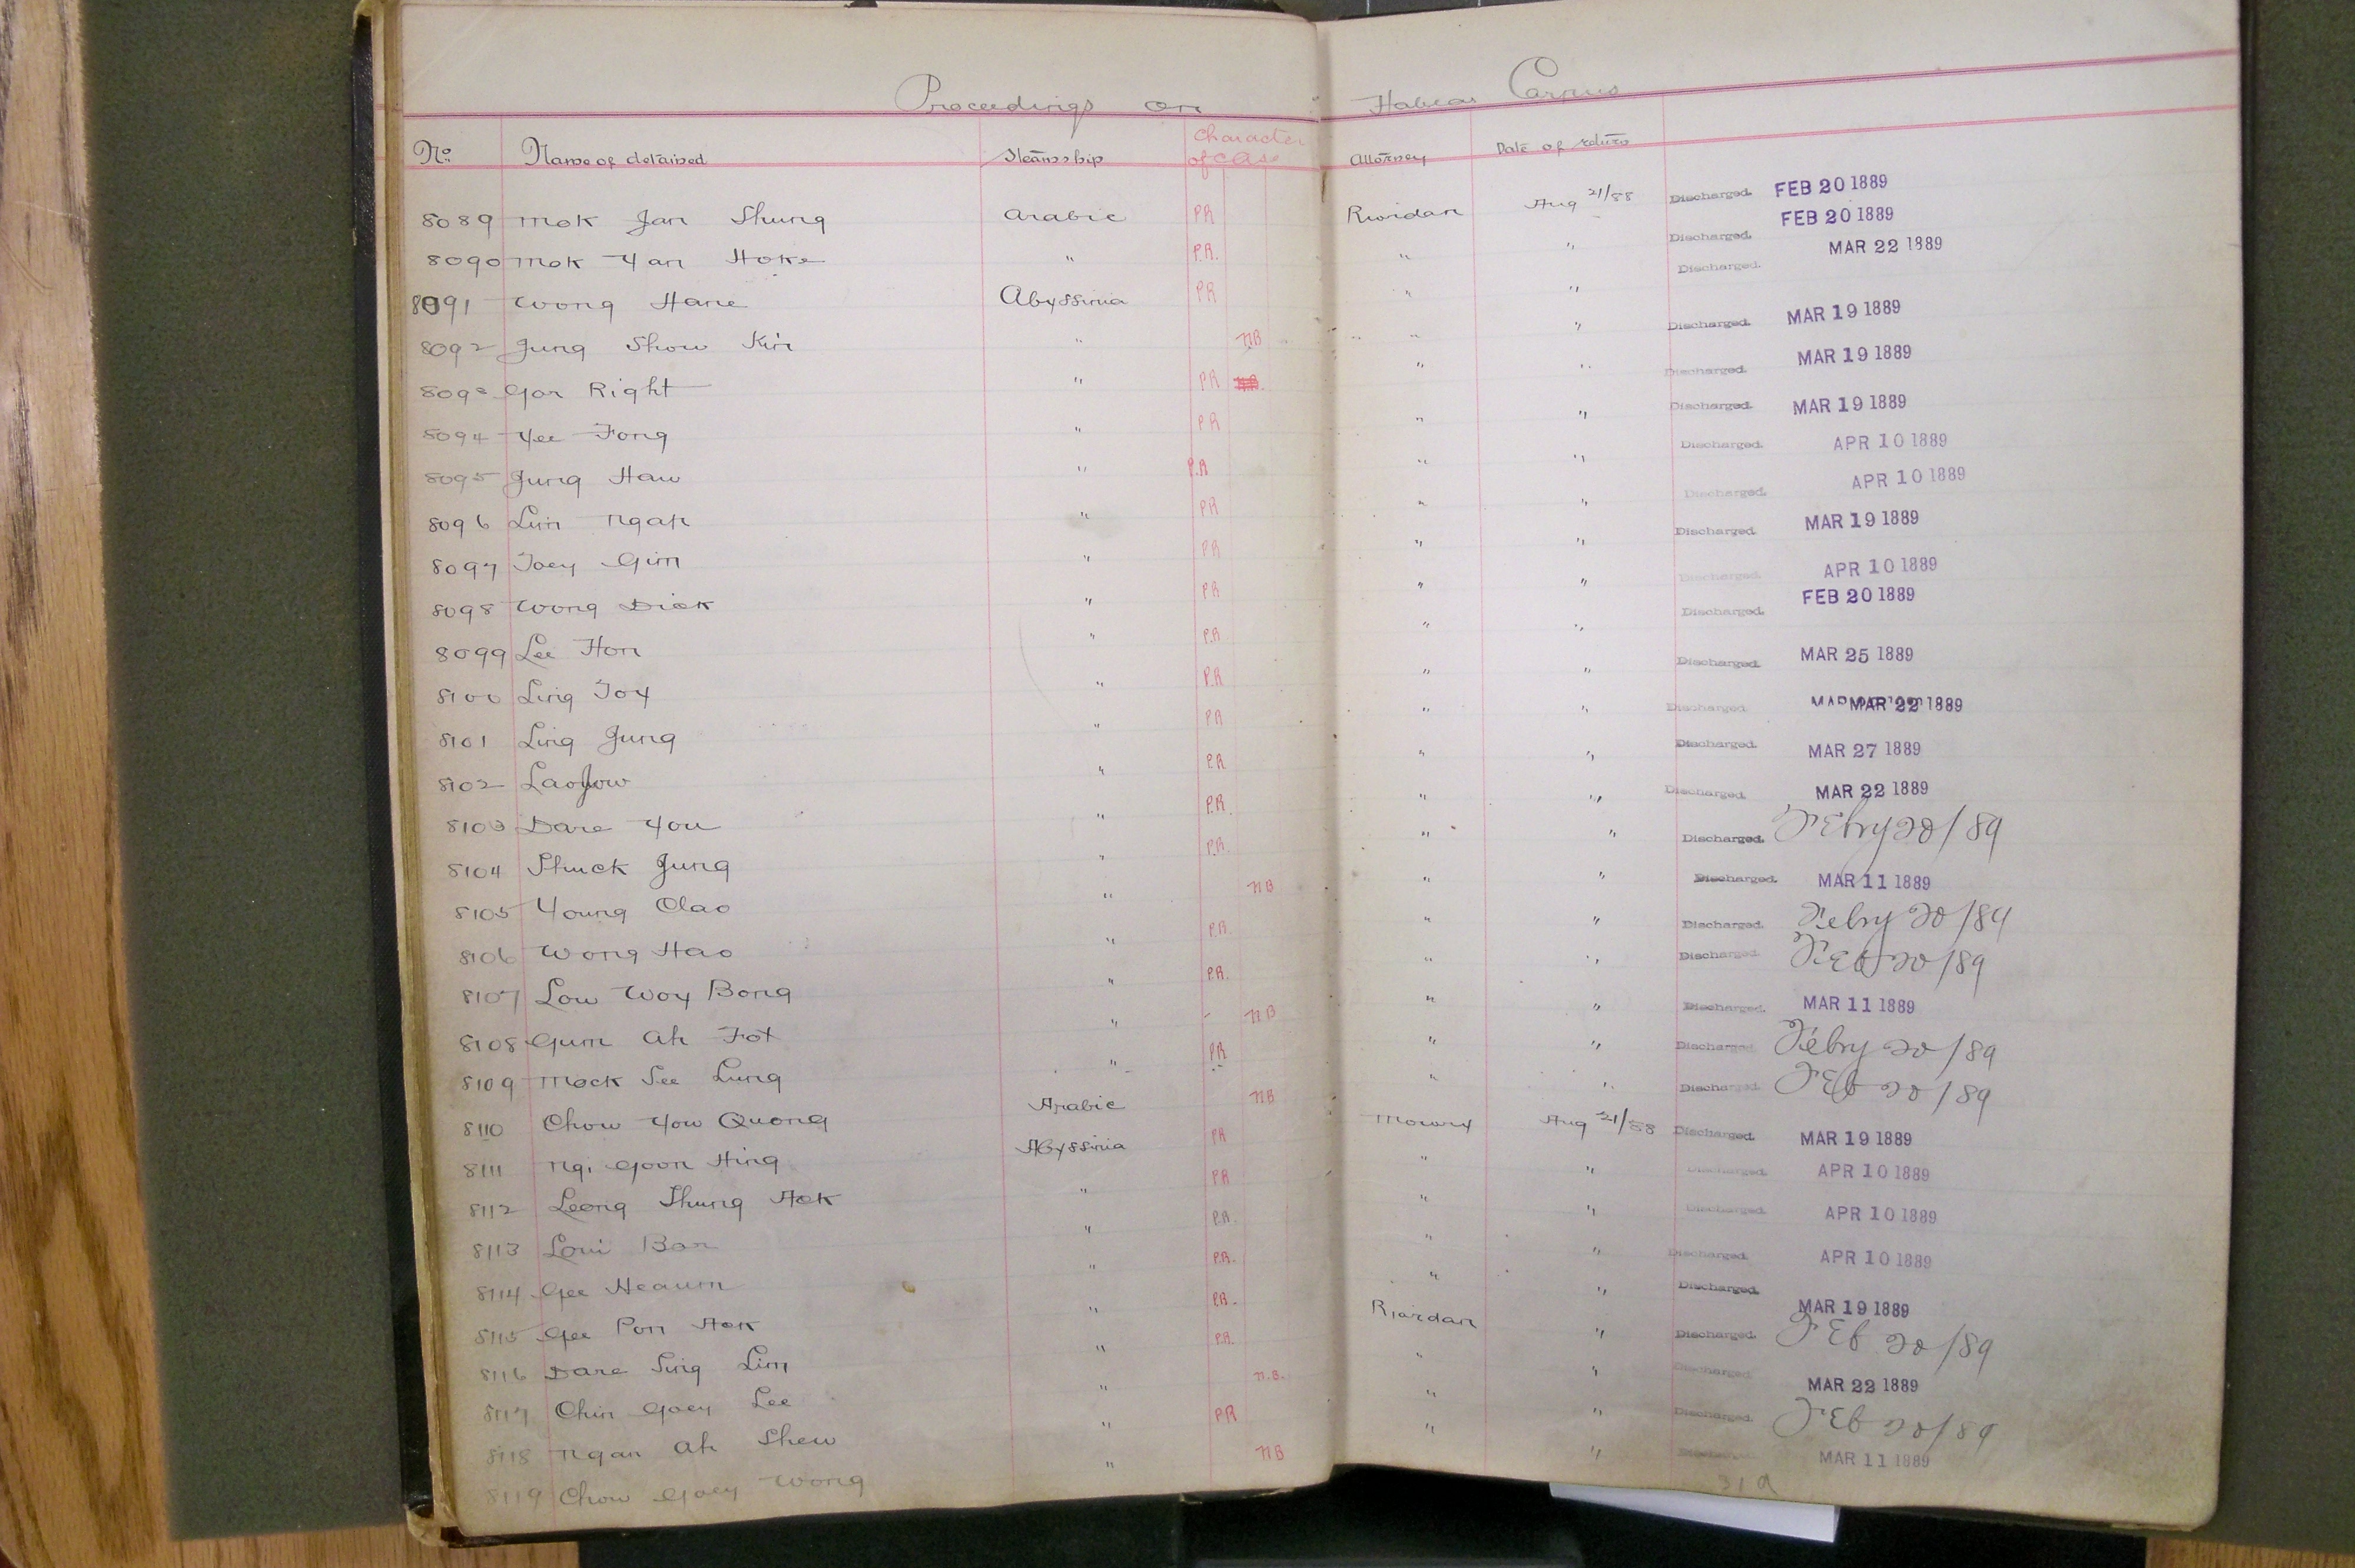 Proceedings on Habeas Corpus
No. Name of detained Steamship Character of Case Attorney Date of return
8089 Mok Jan Shung Arabic PR Riordan Aug 21/88 Discharged. FEB 20 1889
8090 Mok Yan Hoke " P.R. " " Discharged. FEB 20 1889
8091 Wong Hane Abyssinia PR " " Discharged. MAR 22 1889
8092 Jung Show Kin " NB " " Discharged. MAR 19 1889
8093 Gor Right " PR " " Discharged. MAR 19 1889
8094 Yee Fong " PR " " Discharged. MAR 19 1889
8095 Jung Haw " P.R " " Discharged. APR 10 1889
8096 Lim Ngah " PR " " Discharged. APR 10 1889
8097 Joey Gim " PR " " Discharged. MAR 19 1889
8098 Wong Dick " PR " " Discharged. APR 10 1889
8099 Lee Hon " P.R " " Discharged. FEB 20 1889
8100 Ling Joy " P.R " " Discharged. MAR 25 1889
8101 Ling Jung " PR " " Discharged. MAR 22 1889
8102 Lao Jow " P.R " " Discharged. MAR 27 1889
8103 Dare You " P.R. " " Discharged. MAR 22 1889
8104 Shuck Jung " P.R. " " Discharged. Febry 20/89
8105 Young Olao " NB " " Discharged. MAR 11 1889
8106 Wong Hao " P.R. " " Discharged. Febry 20/89
8107 Low Woy Bong " P.R. " " Discharged. Feb 20/89
8108 Gum Ah Fot " - NB " " Discharged. MAR 11 1889
8109 Mock See Lung " PR " " Discharged. Febry 20/89
8110 Chow You Quong Arabic NB " " Discharged. Feb 20/89
8111 Ngi Goon Hing Abyssinia PR Mowry Aug 21/88 Discharged. MAR 19 1889
8112 Leong Shung Hok " PR " " Discharged. APR 10 1889
8113 Loui Bon " P.R. " " Discharged. APR 10 1889
8114 Gee Heaum " P.R. " " Discharged. APR 10 1889
8115 Gee Pon Hok " P.R. " " Discharged. MAR 19 1889
8116 Dare Sing Lim " P.R. Riordan " Discharged. Feb 20/89
8117 Chin Goey Lee " N.B. " " Discharged. MAR 22 1889
8118 Ngan Ah Shew " PR " " Discharged. Feb 20/89
8119 Chow Goey Wong " NB " " MAR 11 1889